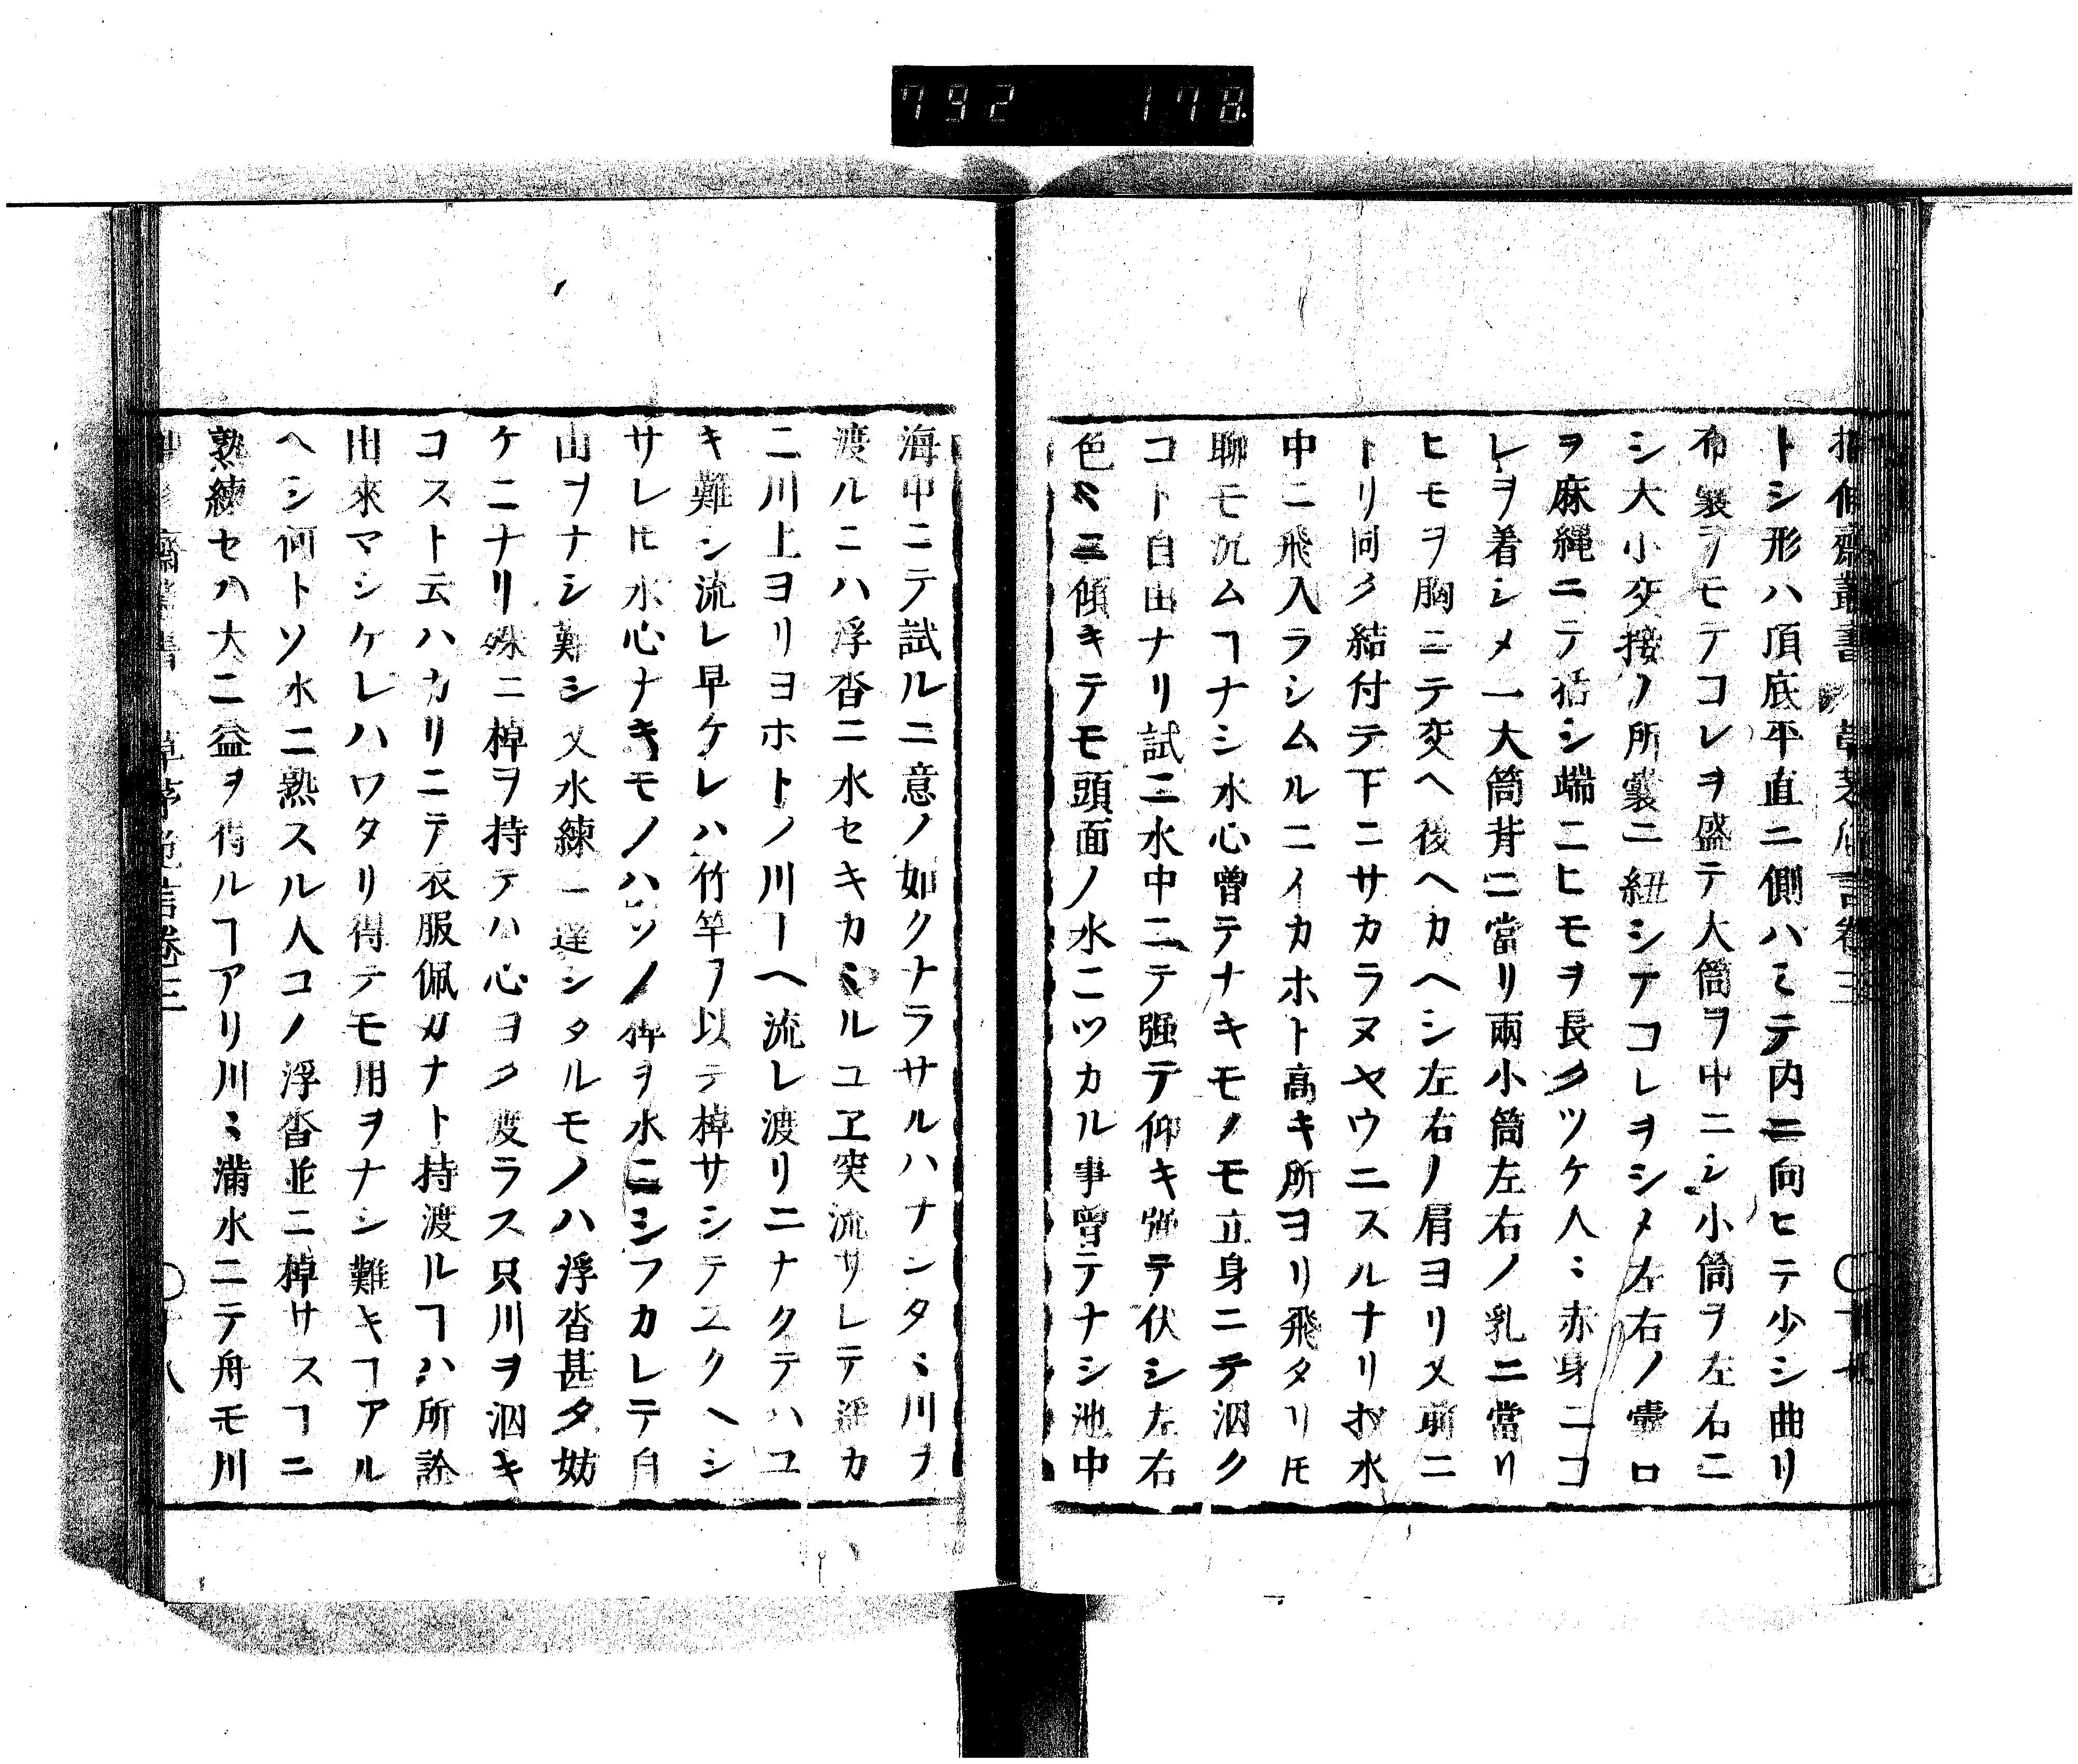 792 178
トシ形ハ頂底平直ニ側ハミテ内ニ向ヒテ少シ曲リ
布嚢ヲモテコレヲ盛テ大筒ヲ中ニシ小筒ヲ左右ニ
シ大小交接ノ所嚢ニ紐シテコレヲシメ左右ノ嚢口
ヲ麻縄ニテ括シ端ニヒモヲ長クツケ人ミ赤身ニコ
レヲ着シメ一大筒背ニ當リ兩小筒左右ノ乳ニ當リ
ヒモヲ胸ニテ交ヘ後ヘカヘシ左右ノ肩ヨリ又前ニ
トリ同ク結付テ下ニサカラヌヤウニスルナリ扨水
中ニ飛入ラシムルニイカホト高キ所ヨリ飛タリㇳモ
聊モ沉ムヿナシ水心曽テナキモノモ立身ニテ泅ク
コト自由ナリ試ニ水中ニテ强テ仰キ强テ伏シ左右
色〻ニ傾キテモ頭面ノ水ニツカル事曽テナシ池中
海中ニテ試ルニ意ノ如クナラサルハナシタミ川ヲ
渡ルニハ浮沓ニ水セキカミルユヱ突流サレテ浮カ
ニ川上ヨリヨホトノ川ーヘ流レ渡リニナクテハユ
キ難シ流レ早ケレハ竹竿ヲ以テ棹サシテユクヘシ
サレㇳモ水心ナキモノハソノ棹ヲ水ニシフカレテ自
由ヲナシ難シ又水練一達シタルモノハ浮沓甚タ妨
ケニナリ殊ニ棹ヲ持テハ心ヨク渡ラス只川ヲ泅キ
コスト云ハカリニテ衣服佩刀ナト持渡ルヿハ所詮
出來マシケレハワタリ得テモ用ヲナシ難キヿアル
ヘシ何トソ水ニ熟スル人コノ浮沓並ニ棹サスヿニ
熟練セハ大ニ益ヲ得ルヿアリ川ミ満水ニテ舟モ川